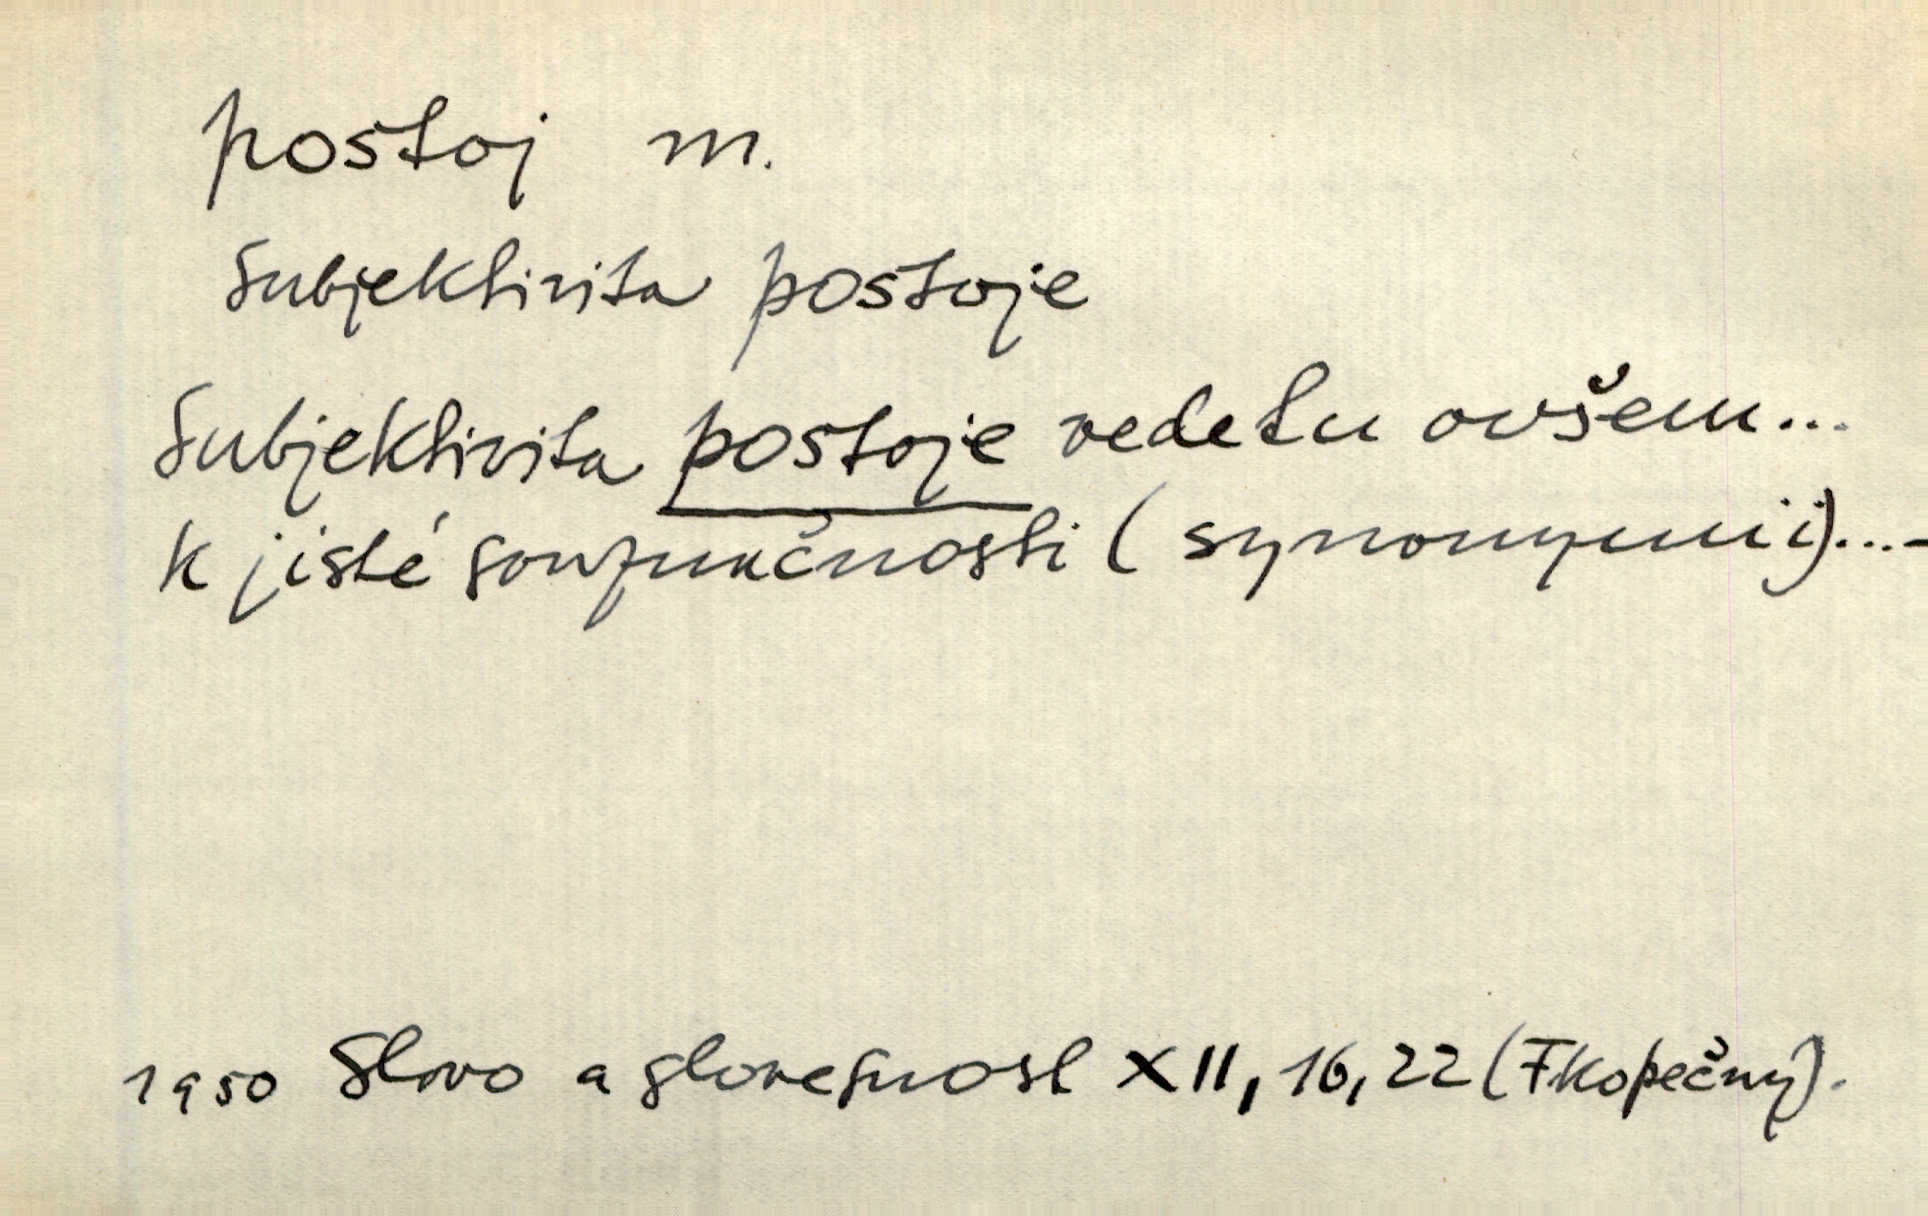 postoj m.
Subjektivita postoje
Subjektivita postoje vede tu ovšem...
k jisté soufunkčnosti (synonymii)...-
1950 Slovo a slovesnost XII, 16, 22 (FKopečný).